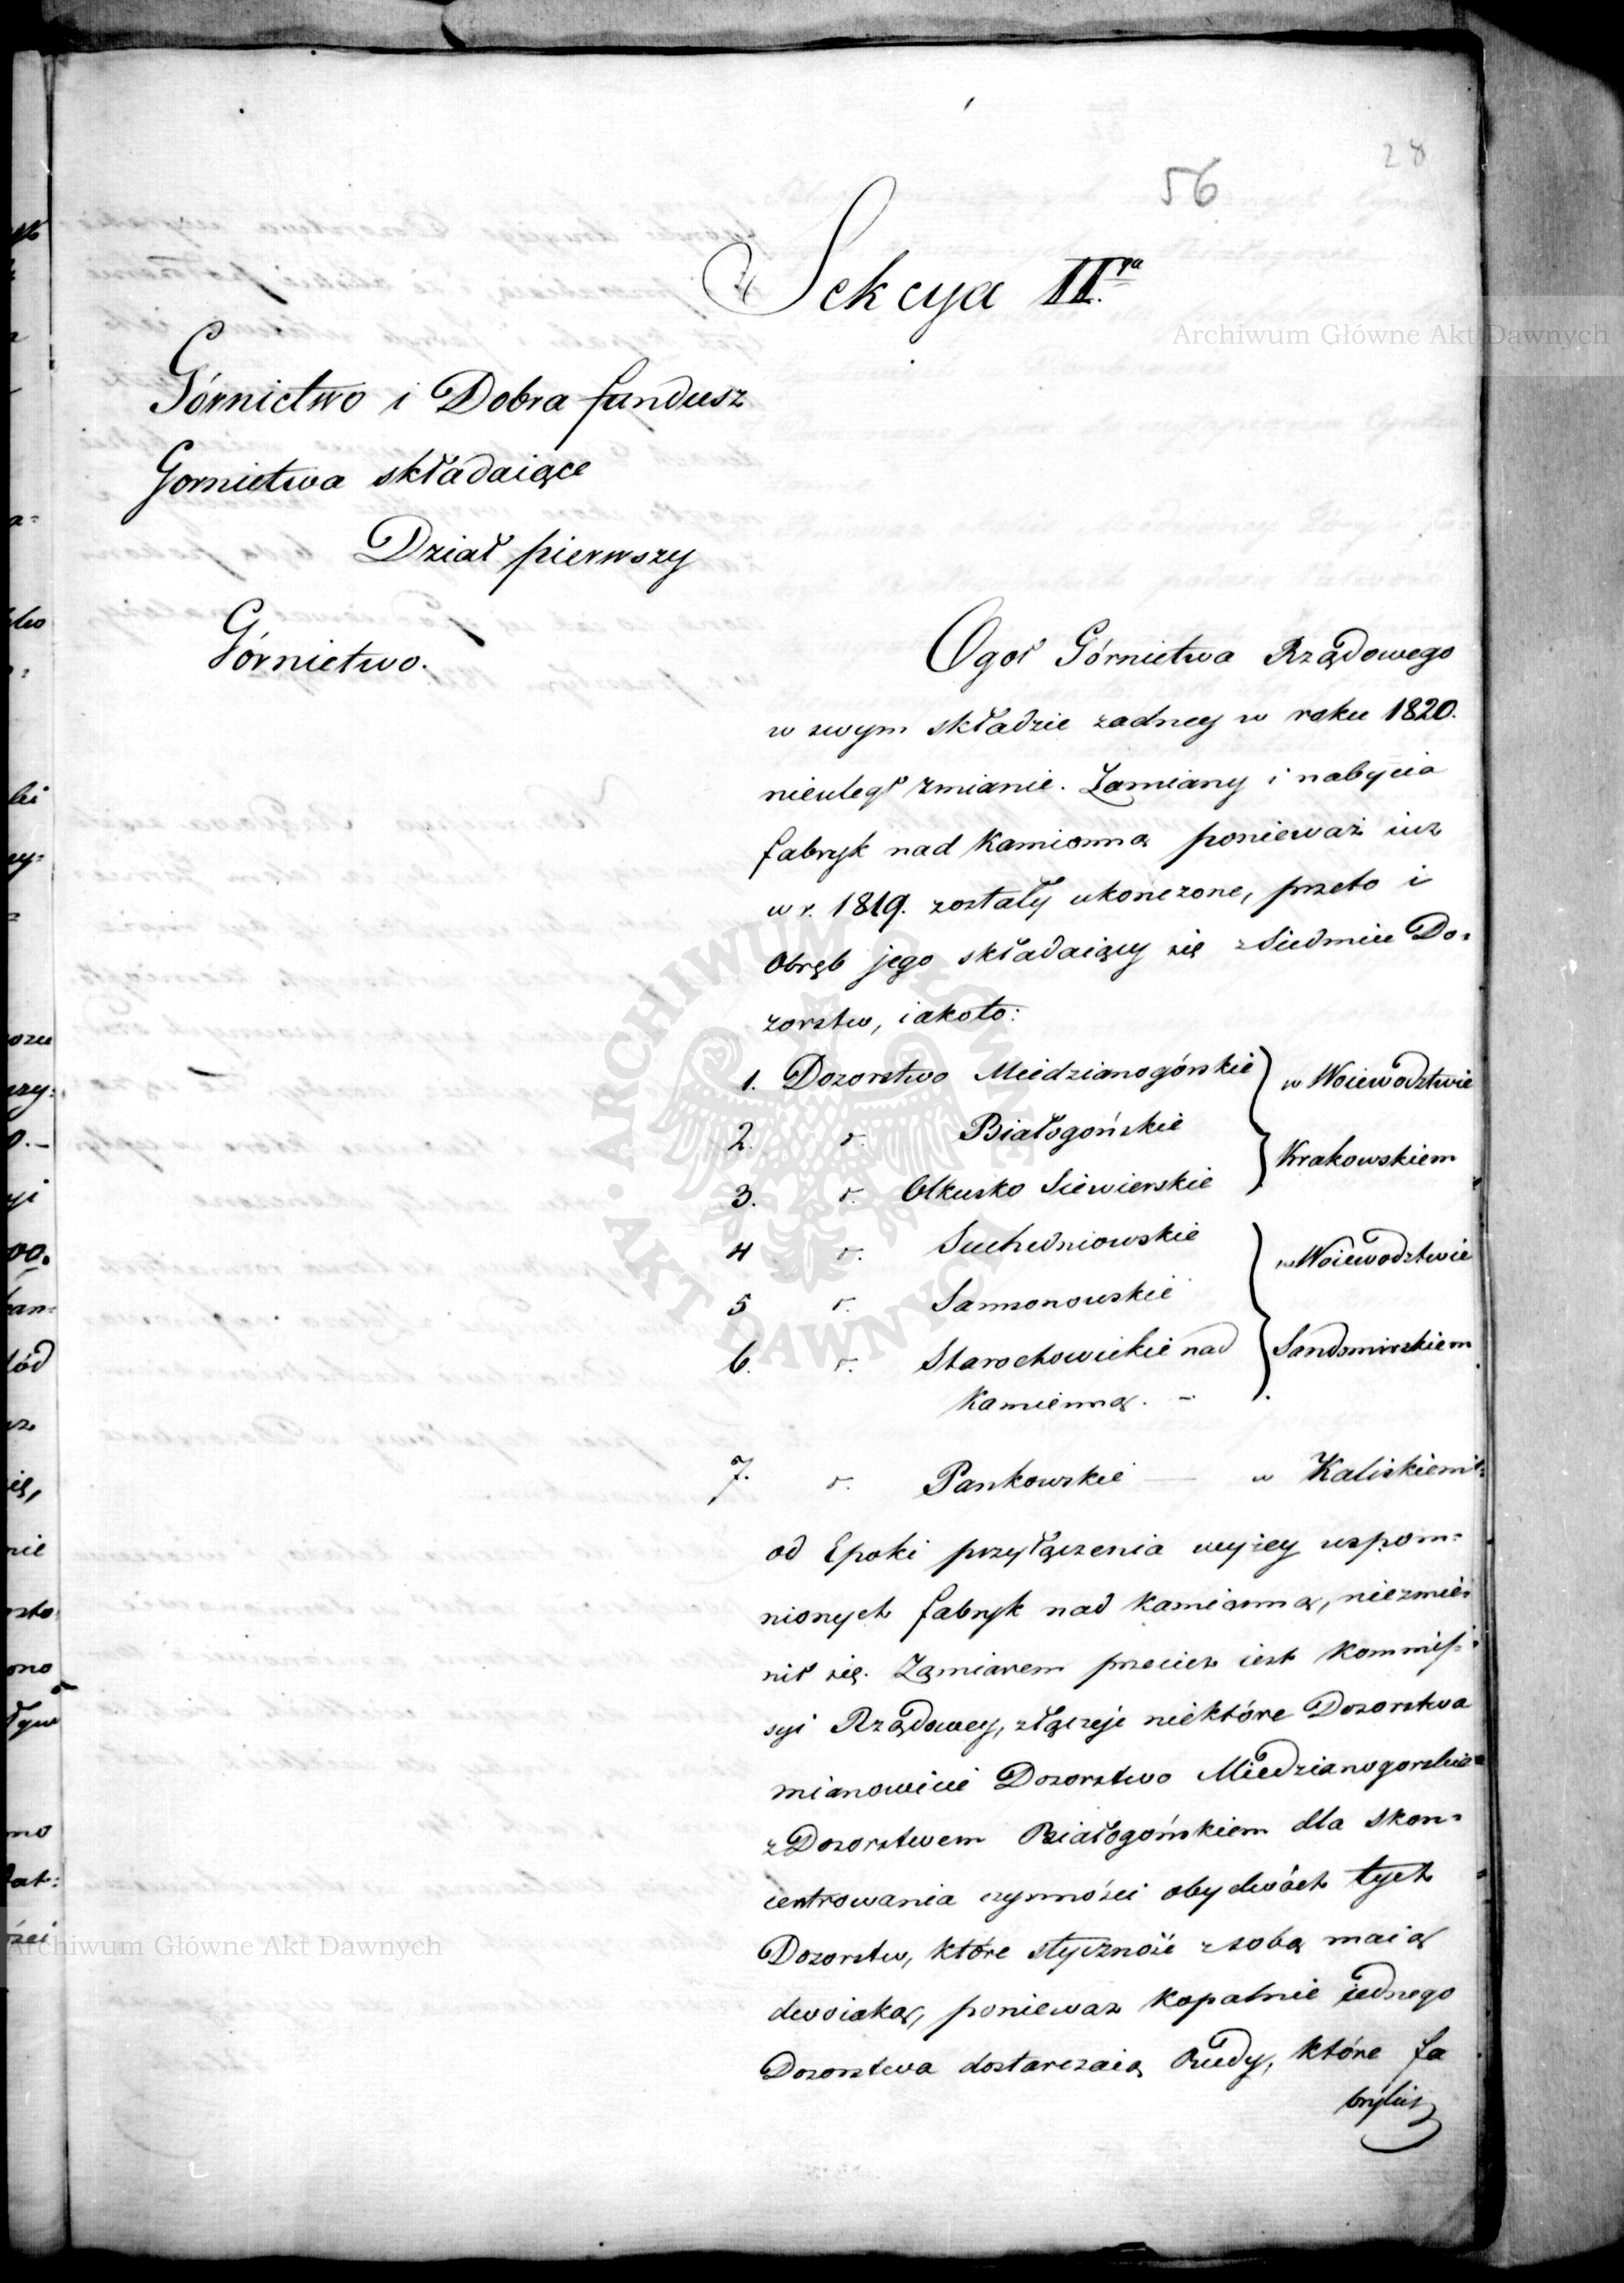 28
56
Sekcya II.ga
Archiwum Główne Akt Dawnych
Górnictwo i Dobra fundusz
Gornictwa składaiące
Dział pierwszy
Górnictwo.
Ogoł Górnictwa Rządowego
w swym składzie zadney w roku 1820.
nieuległ zmianie. Zamiany i nabycia
fabryk nad Kamionną ponieważ iuz
w r. 1819. zostały ukonczone, przeto i
Obręb jego składaiący się z Siedmiu Do=
zorstw, iakoto:
1. Dozorstwo Miedzianogórskie } w Woiewodztwie
2. d. Białogońskie } Krakowskiem
3. d. Olkusko Siewierskie
4 d. Suchedniowskie } w Woiewodztwie
5 d. Samsonowskie } Sandomirskiem
6. d. Starochowickie nad
Kamienną. -
7. d. Pankowskie — w Kaliskiem
od Epoki przyłączenia wyżey wspom=
nionych fabryk nad Kamionną, niezmie=
nił się. Zamiarem przecież iest Kommis=
syi Rządowey, złączyć niektóre Dozorstwa
mianowicie Dozorstwo Miedzianogorskie
z Dozorstwem Białogońskiem dla skon=
centrowania czynności obydwóch tych
Dozorstw, które styczność z sobą maią
dwoiaką, poniewaz Kopalnie iednego
Dozorstwa dostarczaią Rudy, które fa
bryki
ARCHIWUM GŁÓWNE · AKT DAWNYCH
Archiwum Główne Akt Dawnych